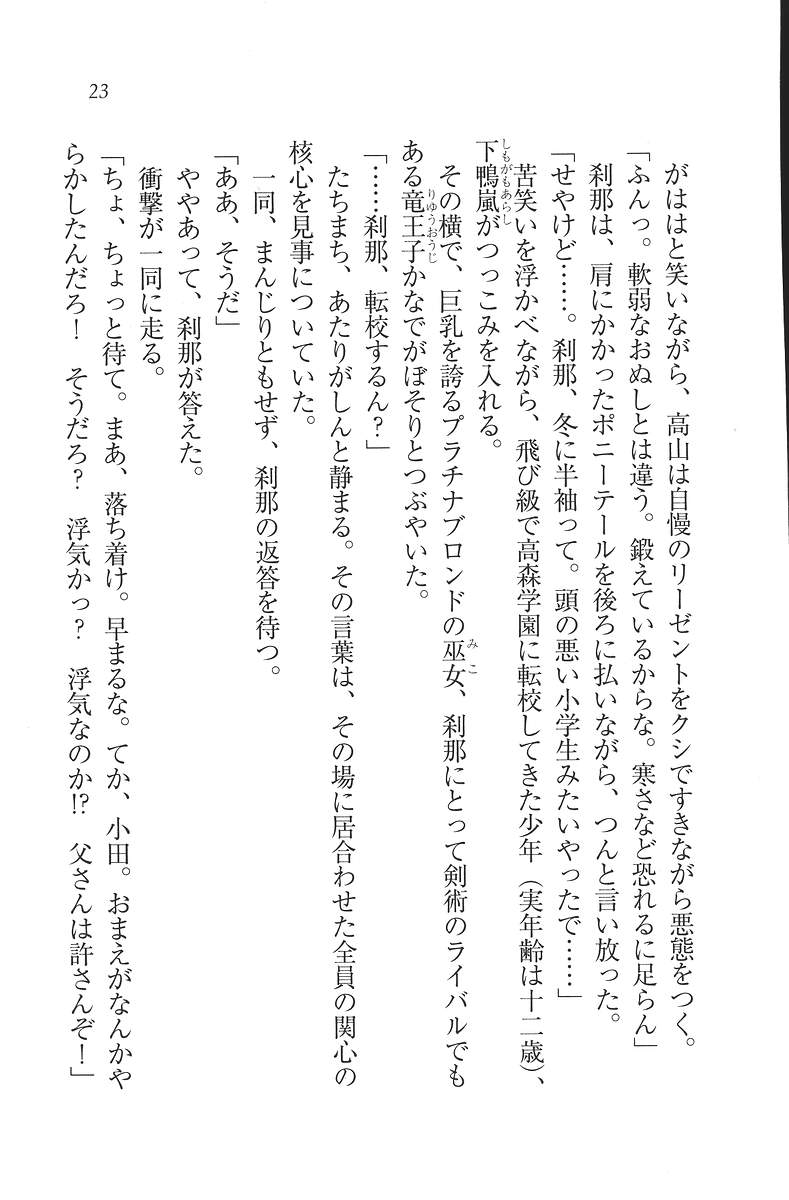 23
がははと笑いながら、高山は自慢のリーゼントをクシですきながら悪態をつく。
「ふんっ。軟弱なおぬしとは違う。鍛えているからな。寒さなど恐れるに足らん」
刹那は、肩にかかったポニーテールを後ろに払いながら、つんと言い放った。
「せやけど……。刹那、冬に半袖って。頭の悪い小学生みたいやったで……」
苦笑いを浮かべながら、飛び級で高森学園に転校してきた少年（実年齢は十二歳）、
下鴨嵐がつっこみを入れる。
しもがもあらし
その横で、巨乳を誇るプラチナブロンドの巫女、刹那にとって剣術のライバルでも
みこ
ある竜王子かなでがぼそりとつぶやいた。
りゅうおうじ
「……刹那、転校するん？」
たちまち、あたりがしんと静まる。その言葉は、その場に居合わせた全員の関心の
核心を見事についていた。
一同、まんじりともせず、刹那の返答を待つ。
「ああ、そうだ」
ややあって、刹那が答えた。
衝撃が一同に走る。
「ちょ、ちょっと待て。まあ、落ち着け。早まるな。てか、小田。おまえがなんかや
らかしたんだろ！　そうだろ？　浮気かっ？　浮気なのか!?　父さんは許さんぞ！」